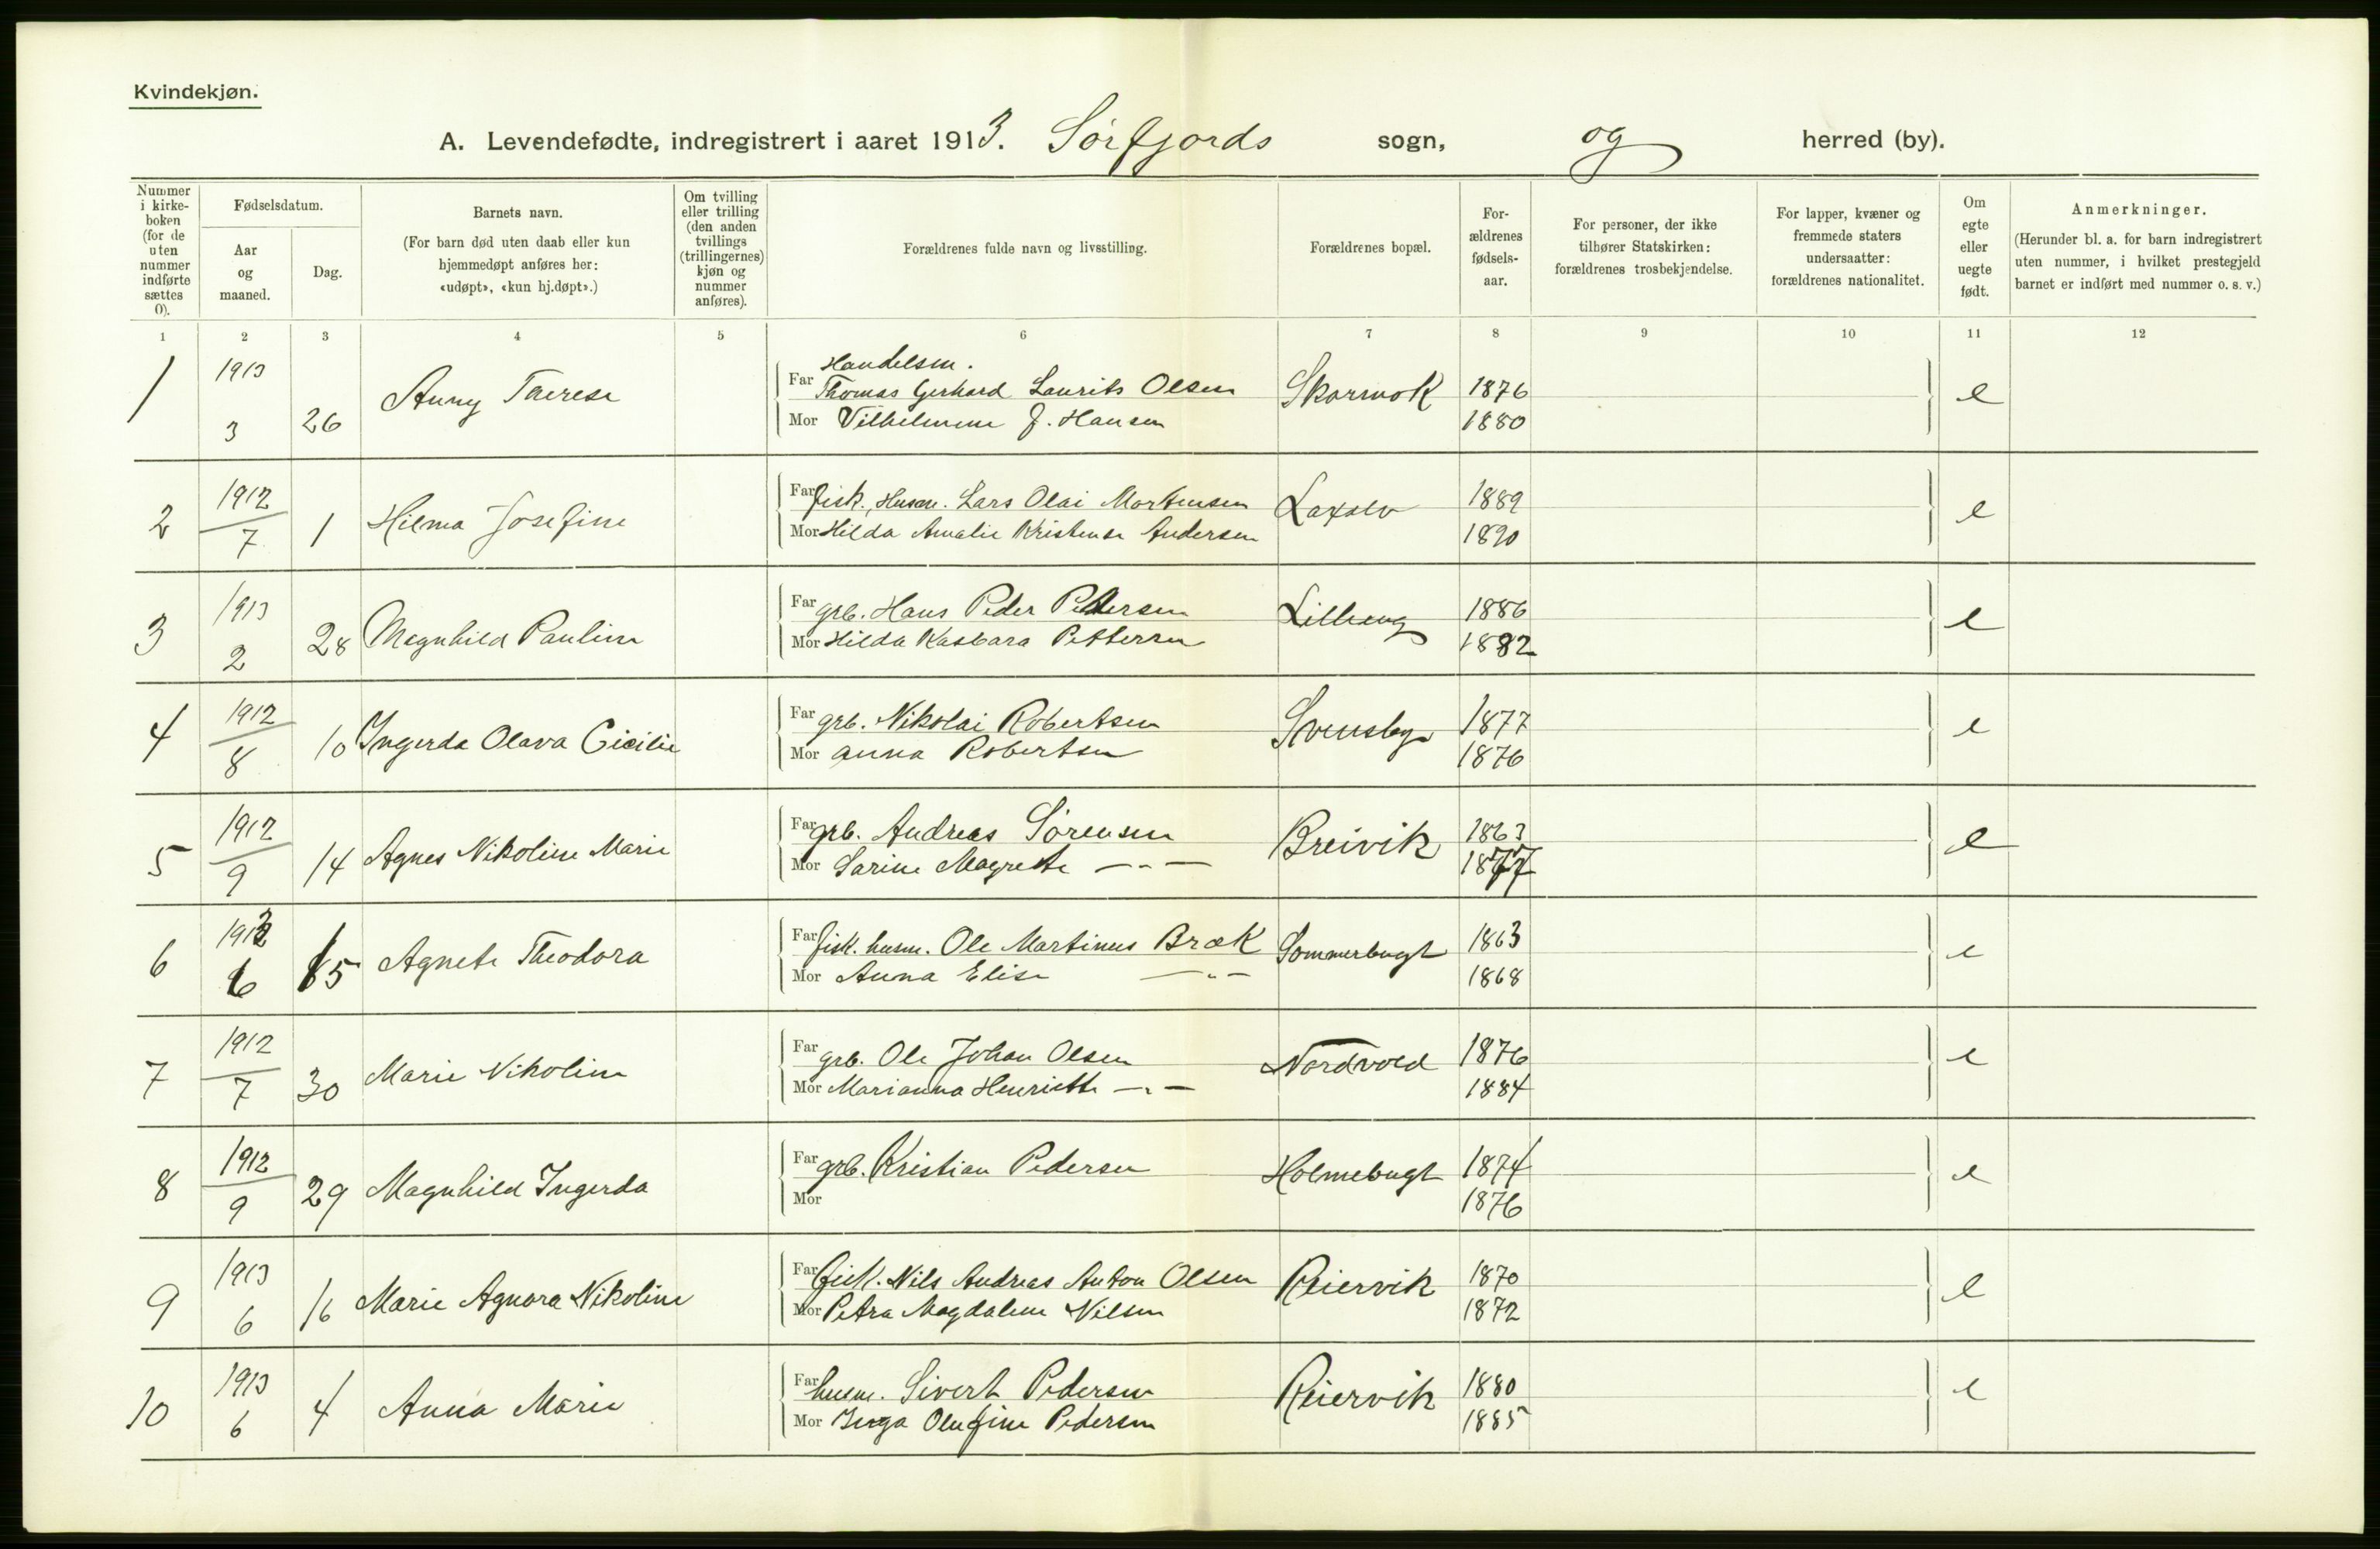 Kvindekjøn.
A. Levendefødte, indregistrert i aaret 1913. Sørfjords sogn, og herred (by).
Nummer i kirke-boken (for de uten nummer indførte sættes 0).
Fødselsdatum.
Aar og maaned.
Dag.
Barnets navn.
(For barn død uten daab eller kun hjemmedøpt anføres her: «udøpt», «kun hj.døpt».)
Om tvilling eller trilling (den anden tvillings (trillingernes) kjøn og nummer anføres).
Forældrenes fulde navn og livsstilling.
Forældrenes bopæl.
For-ældrenes fødsels-aar.
For personer, der ikke tilhører Statskirken: forældrenes trosbekjendelse.
For lapper, kvæner og fremmede staters undersaatter: forældrenes nationalitet.
Om egte eller uegte født.
Anmerkninger.
(Herunder bl. a. for barn indregistrert uten nummer, i hvilket prestegjeld barnet er indført med nummer o. s. v.)
1 2 3 4 5 6 7 8 9 10 11 12
1 1913 3 26 Anny Therese
Far Handelsm. Thomas Gerhard Laurits Olsen Skarmok 1876 e
Mor Vilhelmine J. Hansen 1880
2 1912 7 1 Hilma Josefine
Far fisk., Husm. Lars Olai Mortensen Laxelv 1889 e
Mor Hilda Amalie Kristense Andersen 1890
3 1913 2 28 Magnhild Pauline
Far grb. Hans Peder Pedersen Lilleng 1886 e
Mor Hilda Kasbara Pettersen 1882
4 1912 8 10 Ingerda Olava Cicilie
Far grb. Nikolai Robertsen Svensby 1877 e
Mor Anna Robertsen 1876
5 1912 9 14 Agnes Nikoline Marie
Far grb. Andreas Sørensen Breivik 1863 e
Mor Sarine Magrete — " — 1877
6 1913 6 15 Agnete Theodora
Far fisk. husm. Ole Martinus Bræk Sommerbugt 1863 e
Mor Anna Elise — " — 1868
7 1912 7 30 Marie Nikoline
Far grb. Ole Johan Olsen Nordvold 1876 e
Mor Marianna Henriette — " — 1884
8 1912 9 29 Magnhild Ingerda
Far grb. Kristian Pedersen Holmebugt 1874 e
Mor 1876
9 1913 6 16 Marie Agnora Nikoline
Far fisk. Nils Andreas Anton Olsen Reiervik 1870 e
Mor Petra Magdalene Nilsen 1872
10 1913 6 4 Anna Marie
Far husm. Sivert Pedersen Reiervik 1880 e
Mor Inga Olufine Pedersen 1885